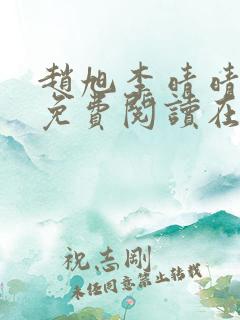 趙旭李晴晴
免費閱讀在
祝志剛
未經同意禁止轉載